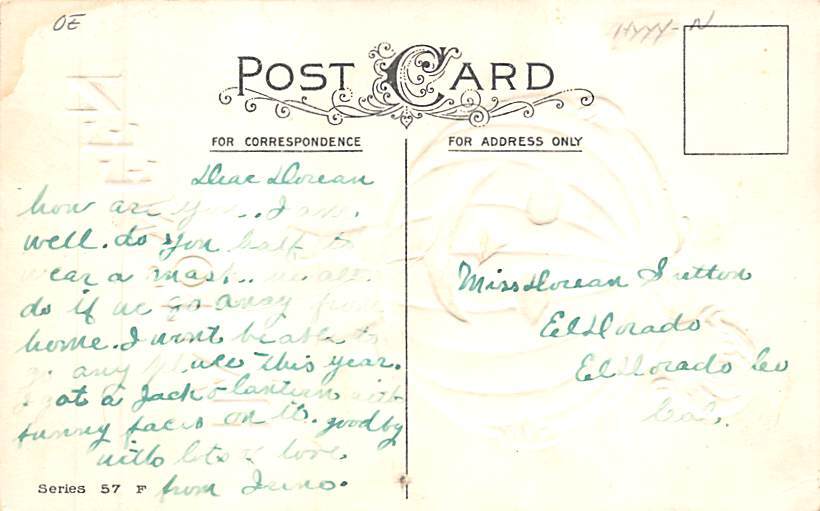 OE
POST CARD
FOR CORRESPONDENCE
FOR ADDRESS ONLY
Dear Dorean
how are you. I am.
well. do you half to
wear a mask.. we all
do if we go away from
home. I wont be able to
go any place this year.
I got a Jack o lantern with
funny faces on it. good by
with lots of love
from
Miss Dorean Sutton
El Dorado
El Dorado Co
Cal.
Series 57 F